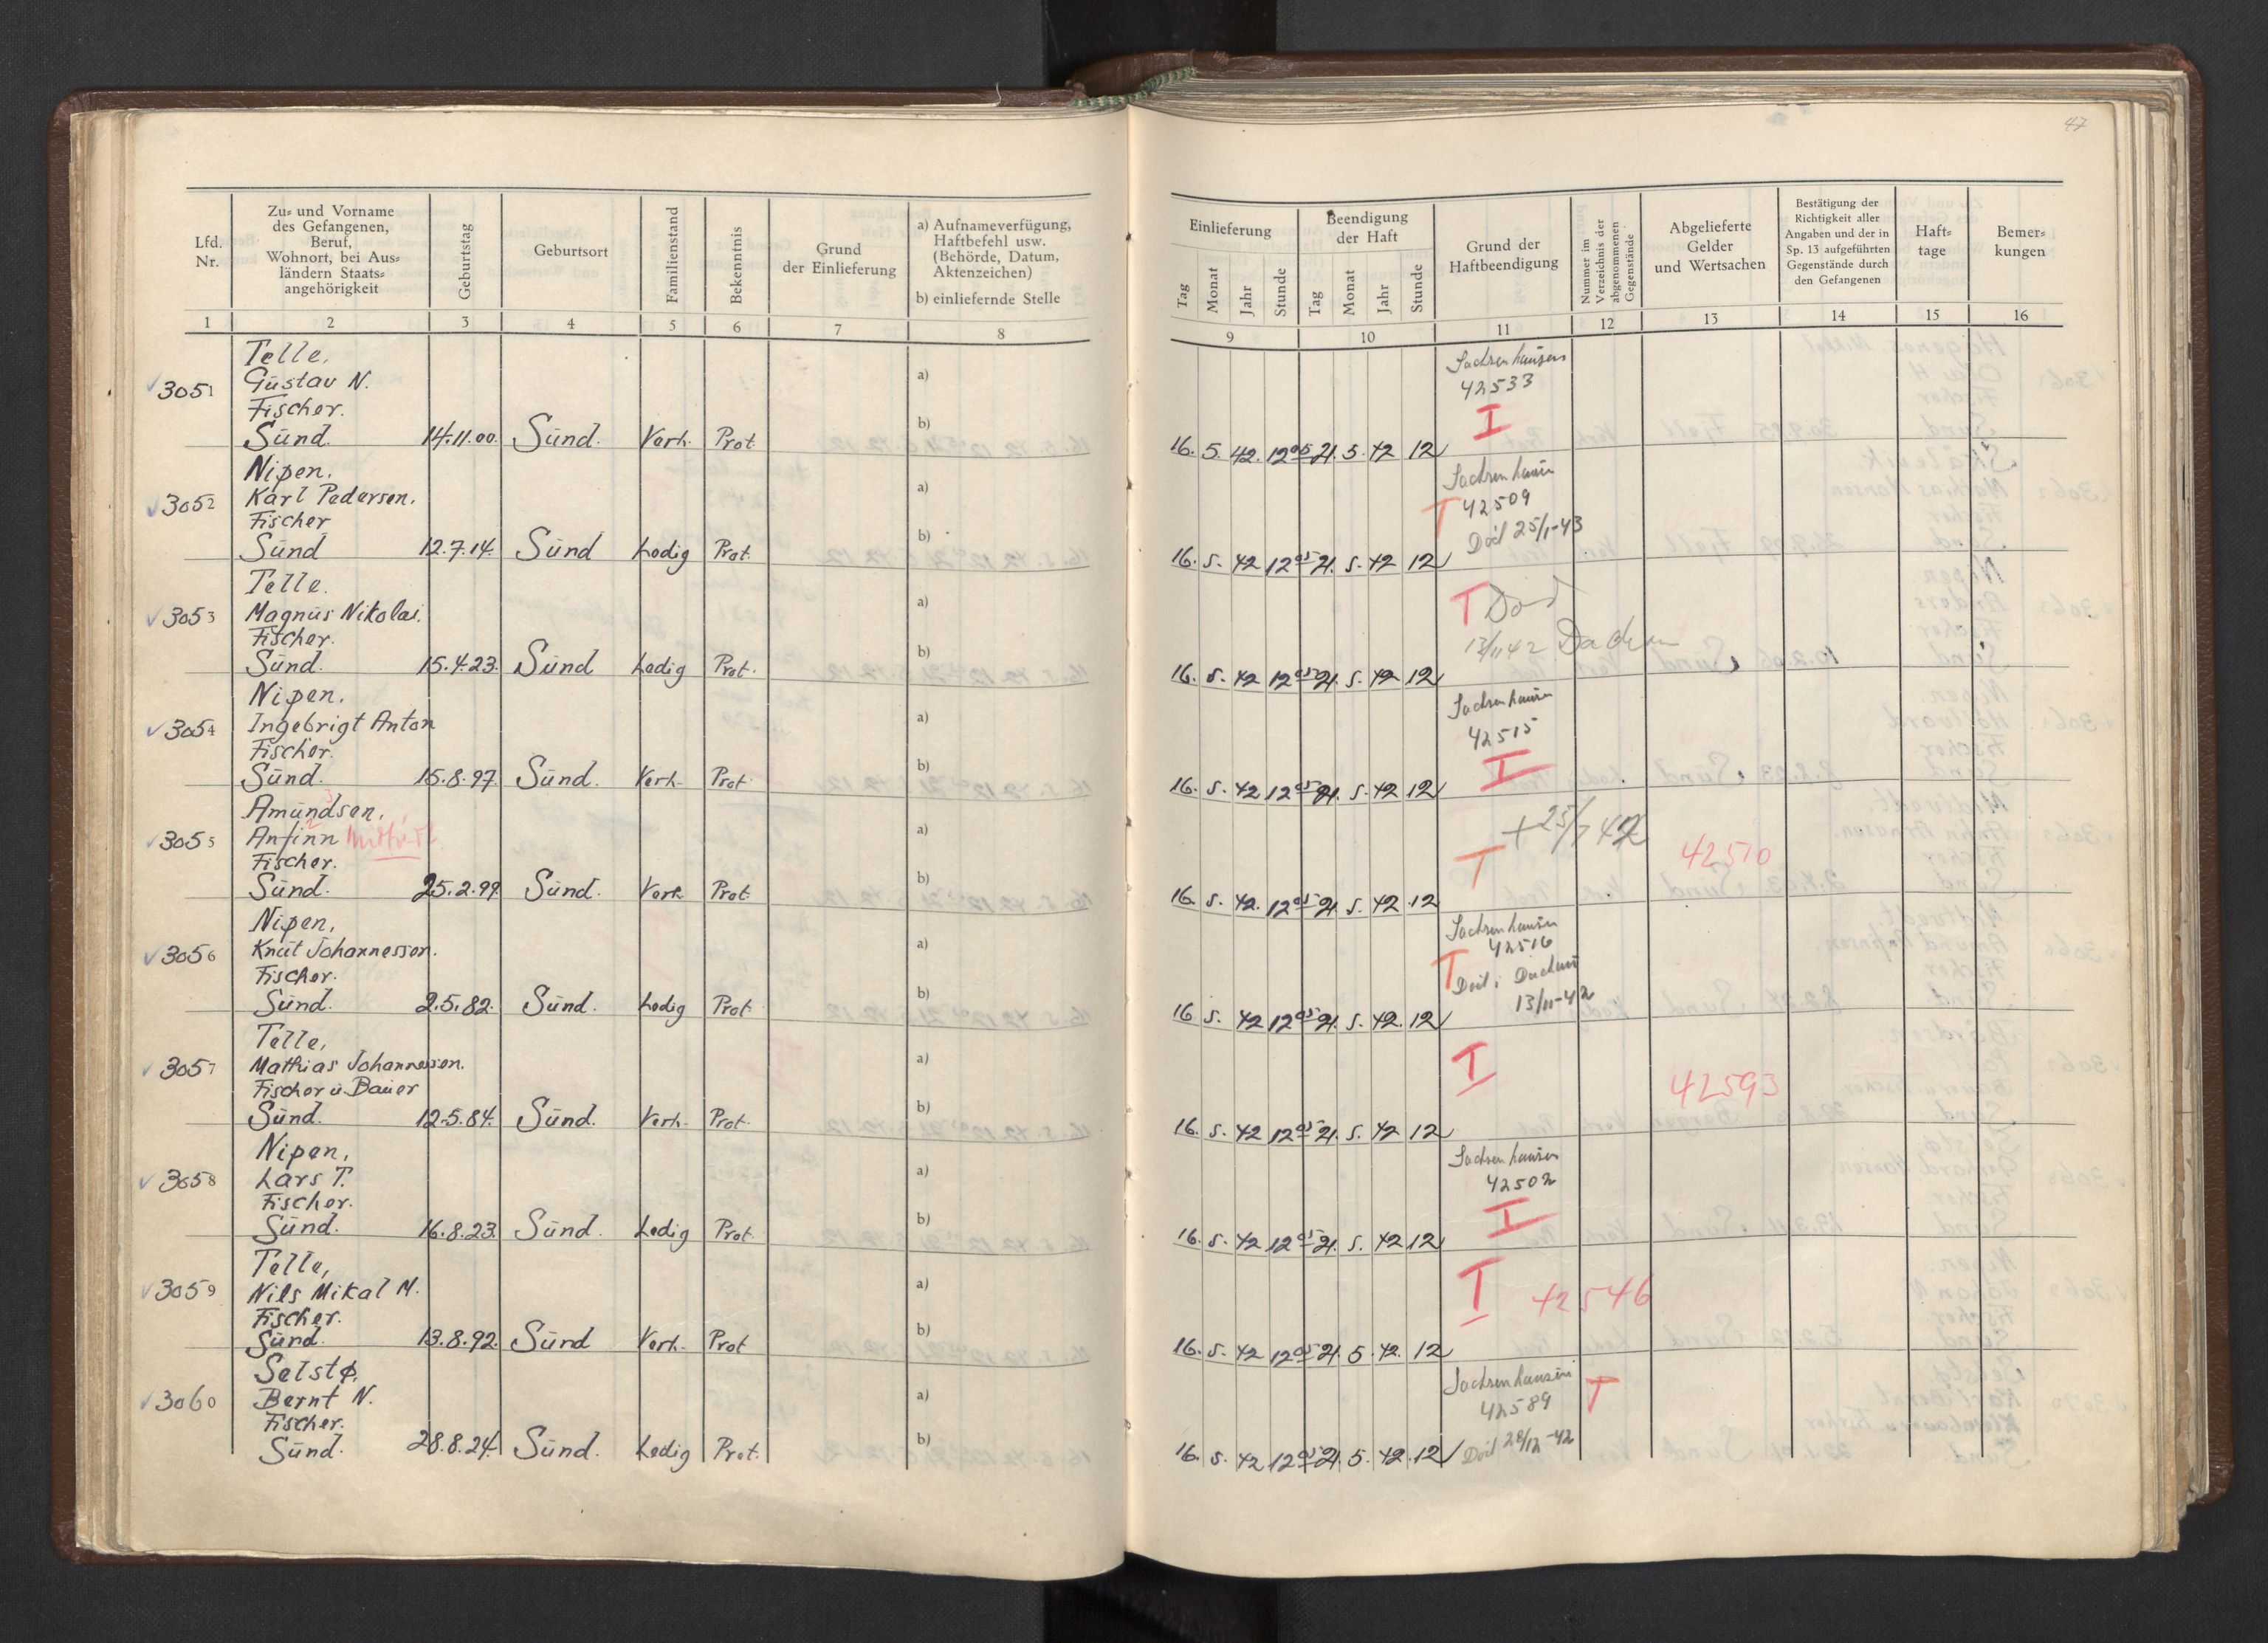 47
Lfd. Nr.
Zu- und Vorname
des Gefangenen,
Beruf,
Wohnort, bei Aus-
ländern Staats-
angehörigkeit
Geburtstag
Geburtsort
Familienstand
Bekenntnis
Grund
der Einlieferung
a) Aufnameverfügung,
Haftbefehl usw.
(Behörde, Datum,
Aktenzeichen)
b) einliefernde Stelle
Einlieferung
Tag Monat Jahr Stunde
Beendigung
der Haft
Tag Monat Jahr Stunde
Grund der
Haftbeendigung
Nummer im
Verzeichnis der
abgenommenen
Gegenstände
Abgelieferte
Gelder
und Wertsachen
Bestätigung der
Richtigkeit aller
Angaben und der in
Sp. 13 aufgeführten
Gegenstände durch
den Gefangenen
Haft-
tage
Bemer-
kungen
1 2 3 4 5 6 7 8 9 10 11 12 13 14 15 16
Telle,
3051 Gustav N. a)
Fischer. b)
Sünd. 14.11.00. Sünd. Verh. Prot 16. 5. 42. 12⁰⁵ 21. 5. 42 12
Sachsenhausen
42533
I
Nipen.
3052 Karl Pedersen. a)
Fischer b)
Sünd 12.7.14. Sünd Ledig Prot. 16. 5. 42 12⁰⁵ 21. 5. 42 12
Sachsenhausen
T 42509
Död 25/1-43
Telle.
3053 Magnus Nikolai. a)
Fischer. b)
Sünd. 15.4.23. Sünd Ledig Prot. 16. 5. 42 12⁰⁵ 21. 5. 42 12
T Död
13/11 42 Dachau
Nipen.
3054 Ingebrigt Anton a)
Fischer. b)
Sünd. 15.8.97. Sünd. Verh. Prot 16. 5. 42 12⁰⁵ 21. 5. 42 12
Sachsenhausen
42515
I
Amundsen,
3055 Anfinn a)
Fischer. b)
Sünd. 25.2.99. Sünd. Verh. Prot. 16. 5. 42. 12⁰⁵ 21. 5. 42 12
+ 25/7 42
T
42510
Nipen,
3056 Knut Johannessen. a)
Fischer. b)
Sünd. 2.5.82. Sünd. Ledig Prot. 16 5. 42 12⁰⁵ 21. 5. 42. 12
Sachsenhausen
42516
T Död i Dachau
13/11-42
Telle,
3057 Mathias Johannessen. a)
Fischer u. Bauer b)
Sünd. 12.5.84. Sünd. Verh. Prot. 16. 5. 42 12⁰⁵ 21. 5. 42 12
I
42593
Nipen,
3058 Lars T. a)
Fischer. b)
Sünd. 16.8.23. Sünd. Ledig Prot. 16. 5. 42 12⁰⁵ 21. 5. 42 12
Sachsenhausen
42502
I
Telle,
3059 Nils Mikal M. a)
Fischer. b)
Sünd. 13.8.92. Sünd Verh. Prot 16. 5. 42 12⁰⁵ 21. 5 42. 12
I 42546
Selstø,
3060 Bernt N. a)
Fischer. b)
Sünd. 28.8.24. Sünd. Ledig Prot. 16. 5. 42 12⁰⁵ 21. 5. 42. 12
Sachsenhausen T
42589
Död 28/12-42